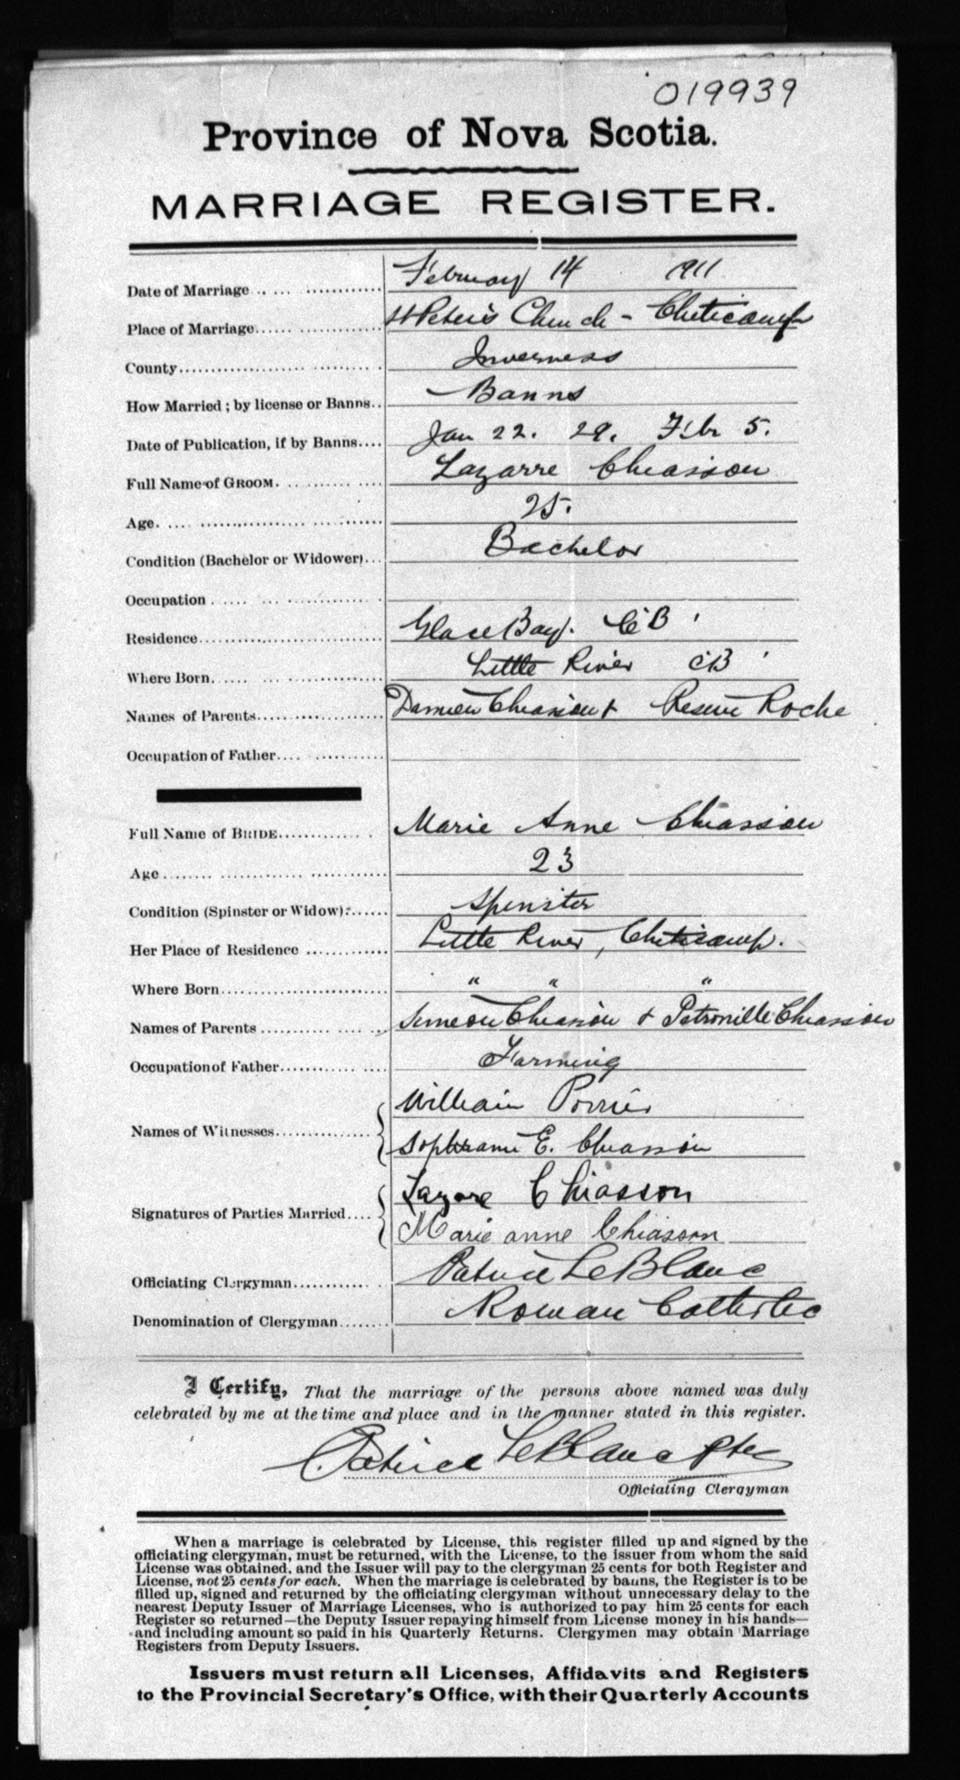 019939
Province of Nova Scotia.
MARRIAGE REGISTER.
Date of Marriage February 14 1911
Place of Marriage St Peter's Church - Cheticamp
County Inverness
How Married; by license or Banns Banns
Date of Publication, if by Banns Jan 22. 29. Feb 5.
Full Name of GROOM Lazarre Chiasson
Age 25.
Condition (Bachelor or Widower) Bachelor
Occupation
Residence Glace Bay. C B
Where Born Little River CB
Names of Parents Damien Chiasson + Roche
Occupation of Father
Full Name of BRIDE Marie Anne Chiasson
Age 23
Condition (Spinster or Widow) Spinster
Her Place of Residence Little River, Cheticamp.
Where Born " " "
Names of Parents Simeon Chiasson + Petronille Chiasson
Occupation of Father Farming
Names of Witnesses William Poirier
E. Chiasson
Signatures of Parties Married Lazare Chiasson
Marie anne Chiasson
Officiating Clergyman Patrice LeBlanc
Denomination of Clergyman Roman Catholic
I Certify, That the marriage of the persons above named was duly
celebrated by me at the time and place and in the manner stated in this register.
Patrice LeBlanc Ptre
Officiating Clergyman
When a marriage is celebrated by License, this register filled up and signed by the
officiating clergyman, must be returned, with the License, to the issuer from whom the said
License was obtained, and the Issuer will pay to the clergyman 25 cents for both Register and
License, not 25 cents for each. When the marriage is celebrated by banns, the Register is to be
filled up, signed and returned by the officiating clergyman without unnecessary delay to the
nearest Deputy Issuer of Marriage Licenses, who is authorized to pay him 25 cents for each
Register so returned—the Deputy Issuer repaying himself from License money in his hands—
and including amount so paid in his Quarterly Returns. Clergymen may obtain Marriage
Registers from Deputy Issuers.
Issuers must return all Licenses, Affidavits and Registers
to the Provincial Secretary's Office, with their Quarterly Accounts